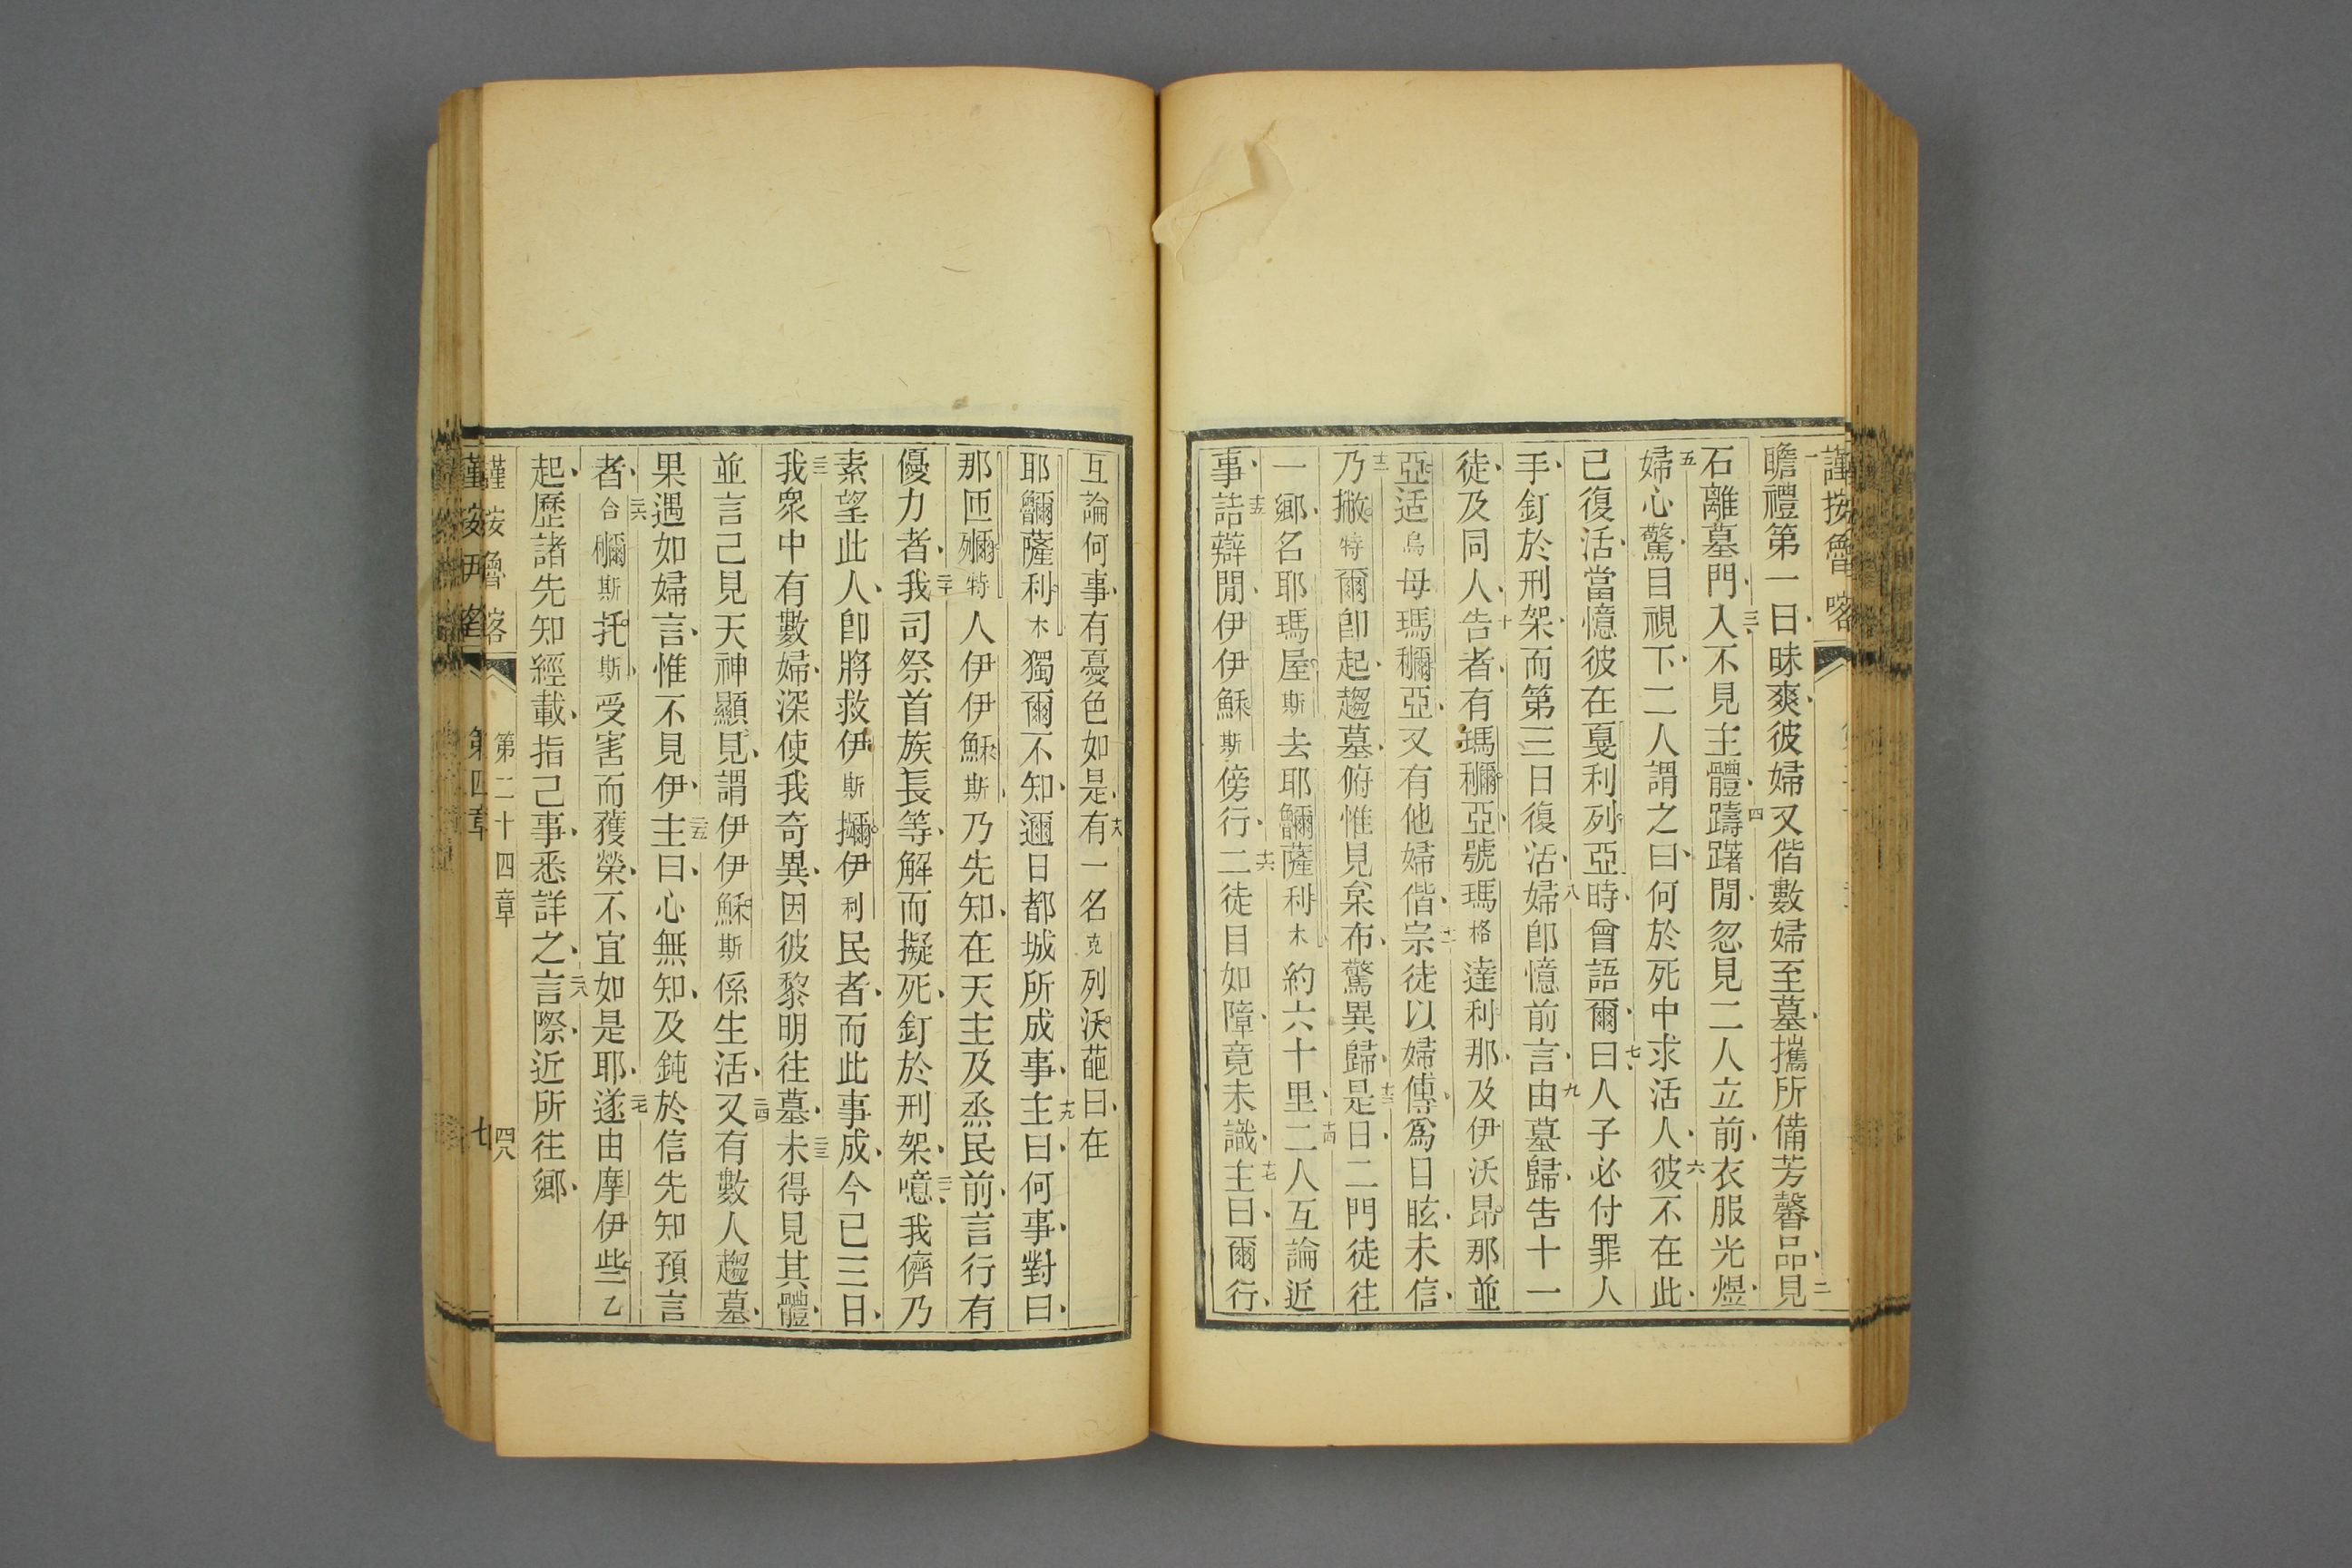 謹按魯喀
一瞻禮第一日昧爽彼婦又偕數婦至墓攜所備芳馨品二見
石離墓門三入不見主體四躊躇閒忽見二人立前衣服光煜
五婦心驚目視下二人謂之曰何於死中求活人六彼不在此
已復活當憶彼在戛利列亞時曾語爾七曰人子必付罪人
手釘於刑架而第三日復活八婦卽憶前言九由墓歸告十一
徒及同人十告者有瑪穪亞號瑪格達利那及伊沃昻那並
亞适烏母瑪穪亞又有他婦偕十一宗徒以婦傳爲目眩未信
十二乃撇特爾卽起趨墓俯惟見枲布驚異歸十三是日二門徒往
一鄉名耶瑪屋斯去耶薩利木約六十里十四二人互論近
事十五詰辯閒伊伊穌斯傍行十六二徒目如障竟未識十七主曰爾行
互論何事有憂色如是十八有一名克列沃葩曰在
耶薩利木獨爾不知邇日都城所成事十九主曰何事對曰
那匝特人伊伊穌斯乃先知在天主及烝民前言行有
優力者二十我司祭首族長等解而擬死釘於刑架二一噫我儕乃
素望此人卽將救伊斯伊利民者而此事成今已三日
二二我衆中有數婦深使我奇異因彼黎明往墓二三未得見其體
並言己見天神顯見謂伊伊穌斯係生活二四又有數人趨墓
果遇如婦言惟不見伊二五主曰心無知及鈍於信先知預言
者二六合斯托斯受害而獲榮不宜如是耶二七遂由摩伊些乙
起歷諸先知經載指己事悉詳之二八言際近所往鄉
謹按魯喀
第二十四章
四八
第四章
七